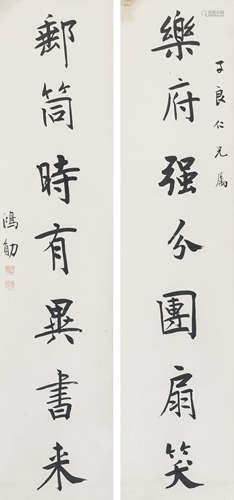 子良仁兄属
樂府强分團扇笑
郵筒時有異書来
鴻勛